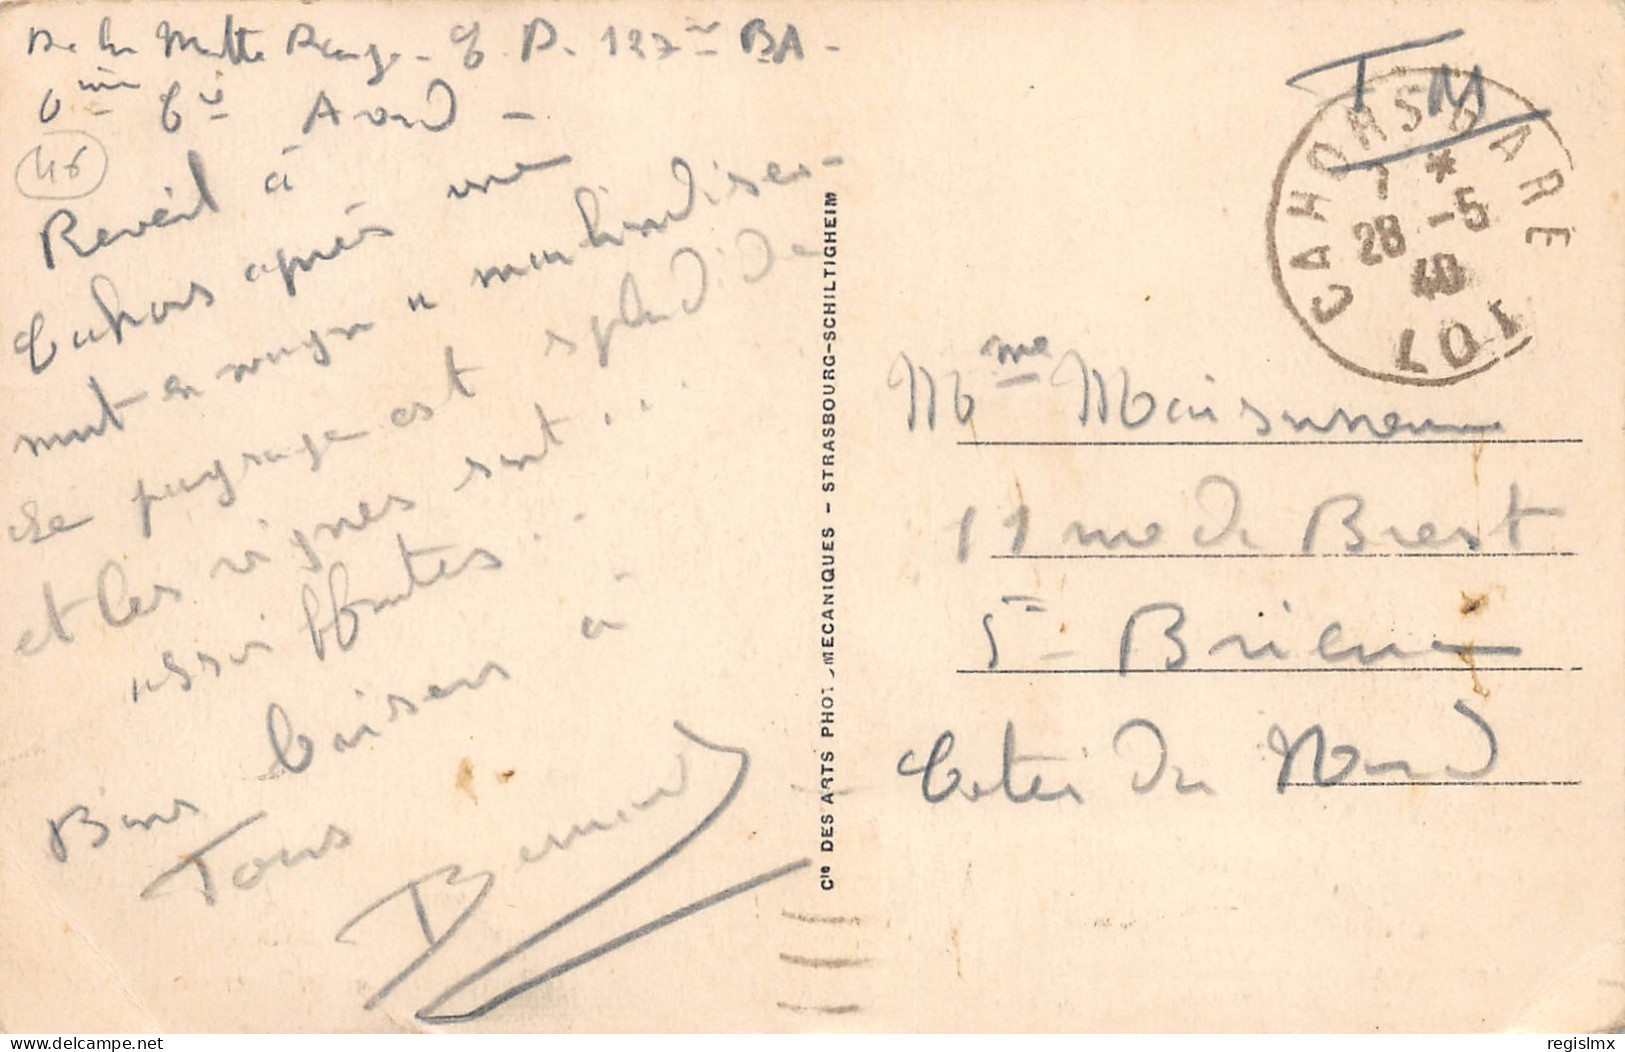 De la Motte Rouge - E.D. 127e BA -
6ème Cie Avord -
46
Reveil à
Cahors après une
nuit en wagon "marchandises-
Le paysage est splendide
et les vignes sont . . .
assoiffantes . . .
Bons baisers à
Tous
Bernard
Cie DES ARTS PHOTOMECANIQUES - STRASBOURG-SCHILTIGHEIM
F M
CAHORS GARE
7 *
28 -5
40
LOT
Mme Maisonneuve
11 rue de Brest
St Brieuc
Cotes du Nord
delcampe.net
regislmx